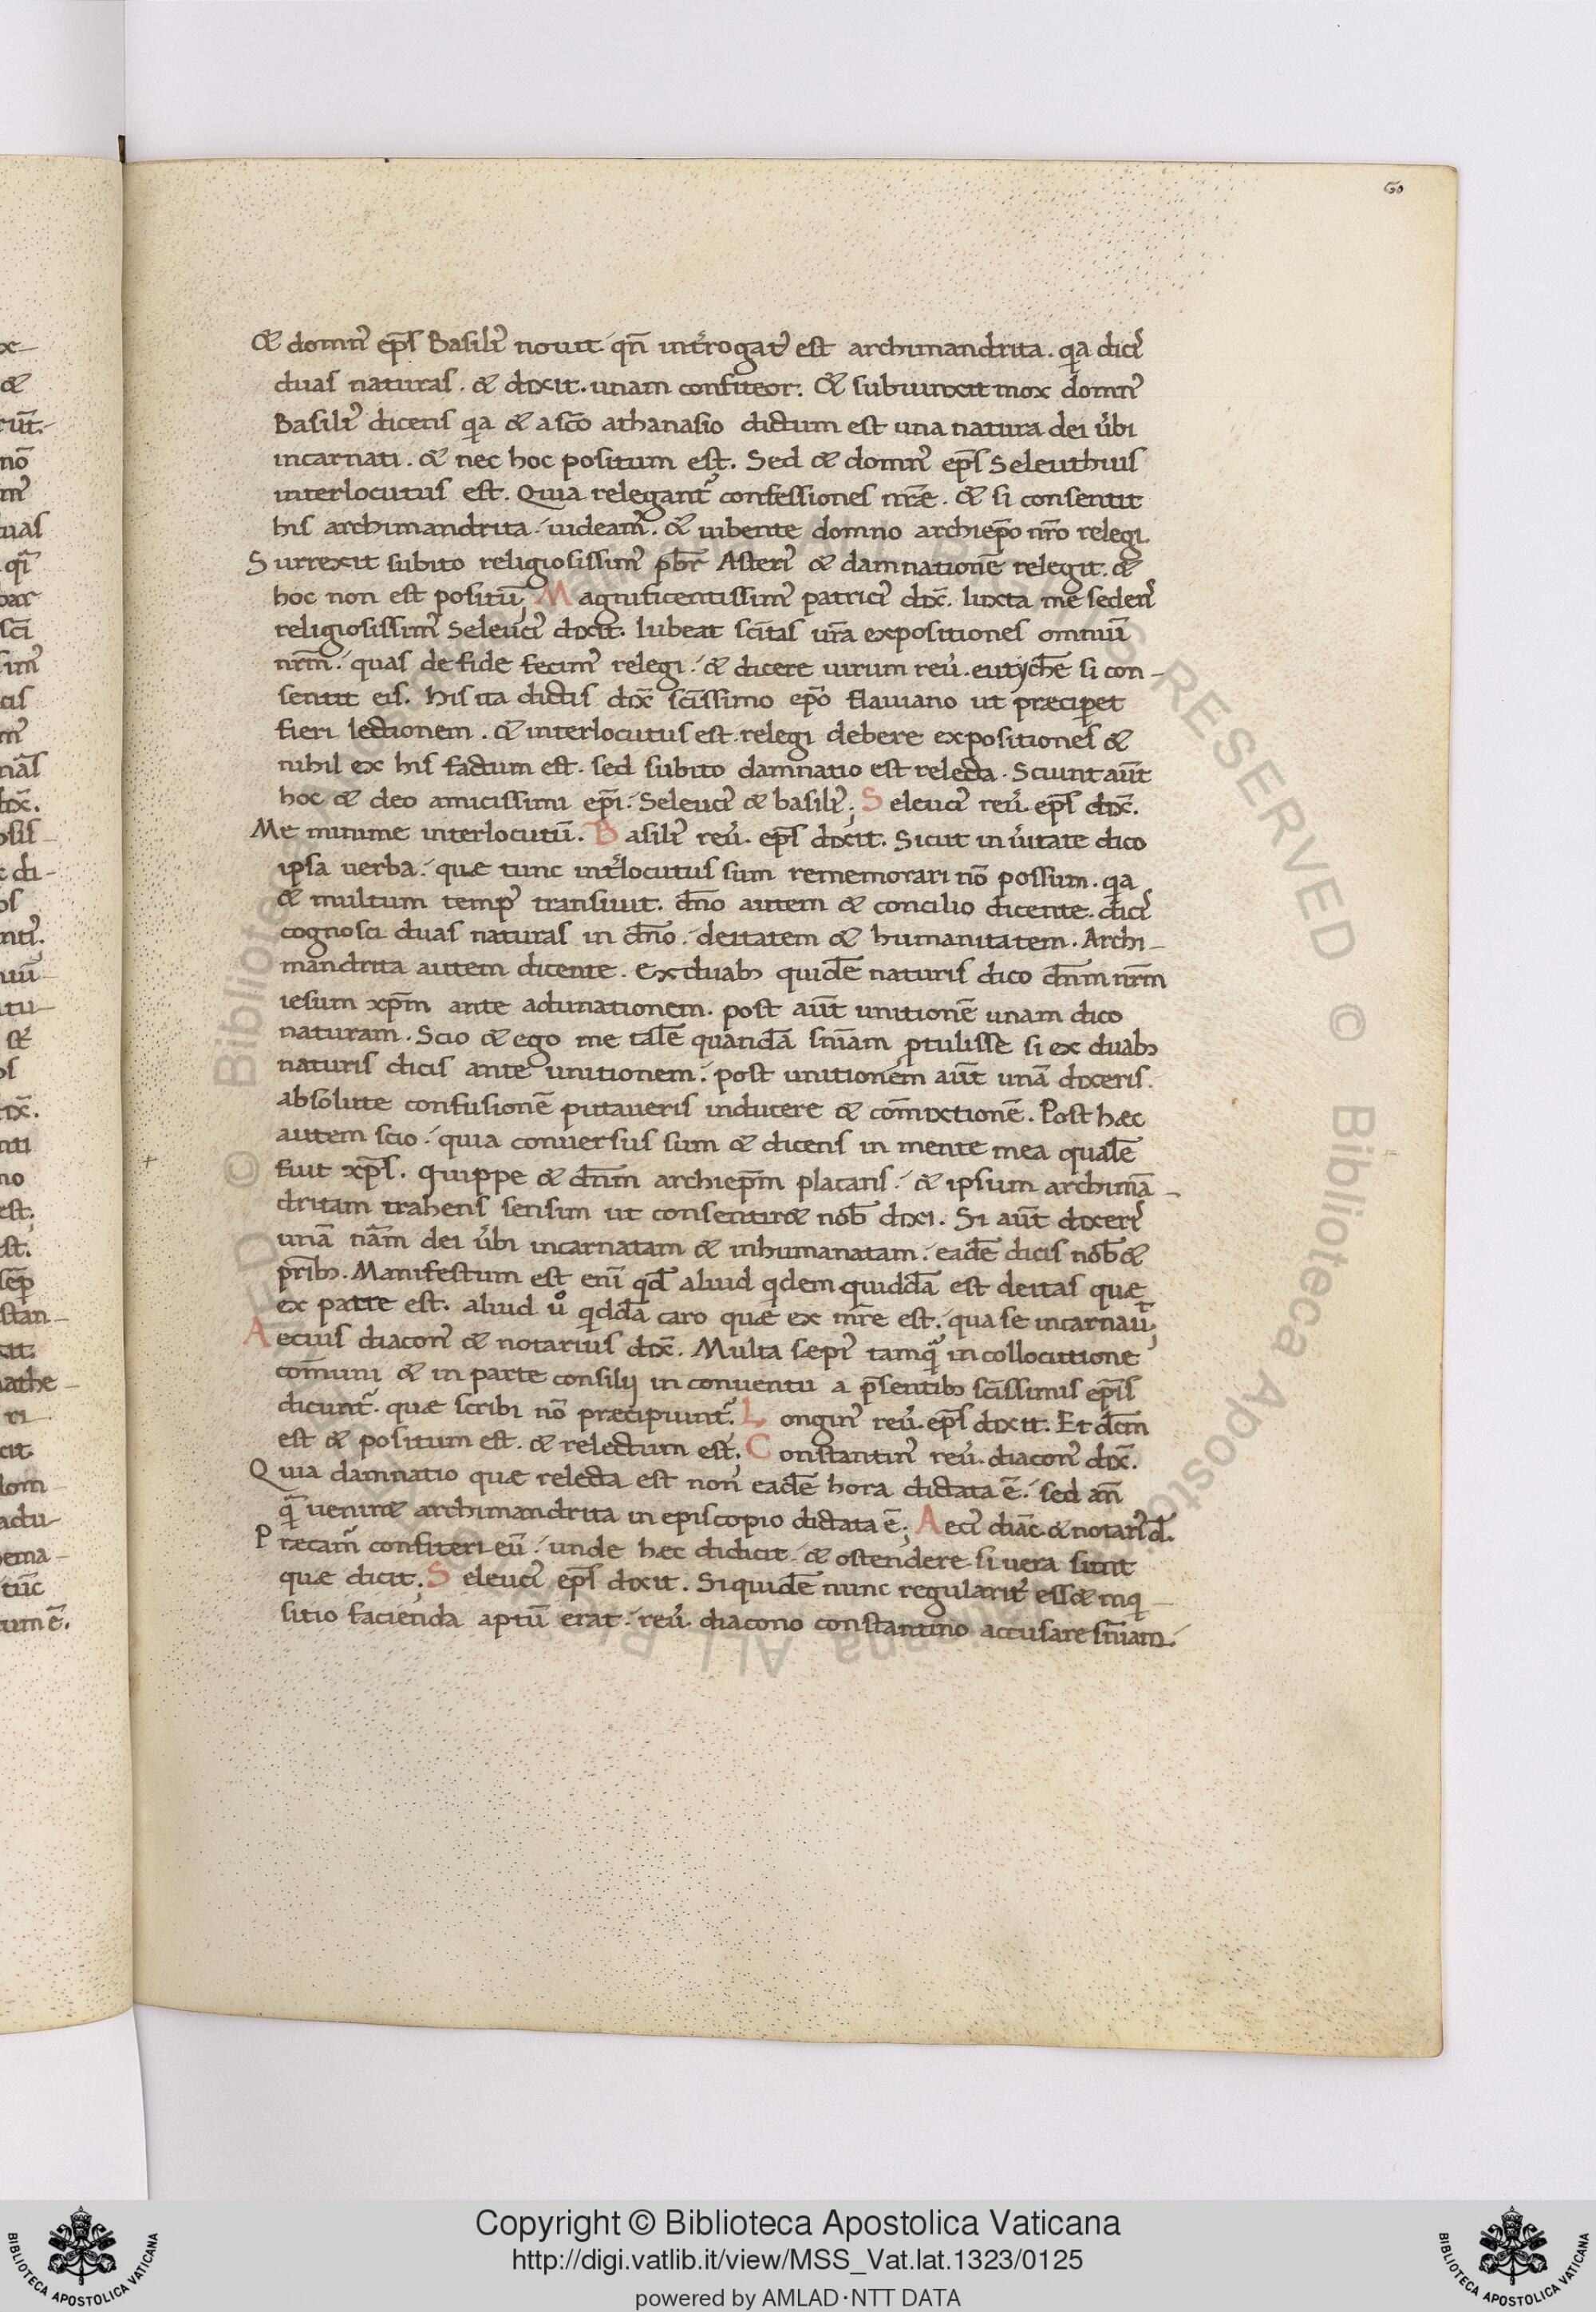 60
& domn᾽ ep̄s Basili᾽ novit. qn̄ int̓rogat᾽ est archimandrita. qia dici᾽
duas naturas. & dixit. unam confiteor. & subiunxit mox domn᾽
Basili᾽ dicens qia & a sc̄o athanasio dictum est una natura dei u̓bi
incarnati. & nec hoc positum est. Sed & domn᾽ ep̄s Seleuthius
interlocutus est. Quia relegant᾽ confessiones nr̄æ. & si consentit
his archimandrita. uideam᾽. & iubente domno archiep̄o nr̄o relegi.
Surrexit subito religiosissim᾽ pb̄r Asteri᾽ & damnationē relegit. &
hoc non est positū; Magnificentissim᾽ patrici᾽ dix̄. Iuxta me seden᾽
religiosissim᾽ Seleuci᾽ dixit. Iubeat sc̄itas ur̄a expositiones omniū
nr̄m. quas de fide fecim᾽ relegi. & dicere uirum reu̓. eutychē si con-
sentit eis. His ita dictis dix̄ sc̄issimo ep̄o flauiano ut præcip̄et
fieri lectionem. & interlocutus est. relegi debere expositiones &
nihil ex his factum est. sed subito damnatio est relecta. Sciunt aūt
hoc & deo amicissimi ep̄i. Seleuci᾽ & basili᾽; Seleuci᾽ reu̓. ep̄s dix̄.
Me minime interlocutū. Basili᾽ reu̓. ep̄s dixit. Sicut in u̓itate dico
ipsa uerba. quæ tunc int̓locutus sum rememorari nō possum. qia
& multum temp᾽ transiuit. dn̄o autem & concilio dicente. dici᾽
cognosci duas naturas in dn̄o. deitatem & humanitatem. Archi-
mandrita autem dicente. Ex duab; quidē naturis dico dn̄m nr̄m
iesum xp̄m ante adunationem. post aūt unitionē unam dico
naturam. Scio & ego me talē quandā sn̄iam ꝓtulisse si ex duab;
naturis dicis ante unitionem. post unitionem aūt unā dixeris.
absolute confusionē putaueris inducere & com̄ixtionē. Post hæc
autem scio. quia conuersus sum & dicens in mente mea qualē
fuit xp̄s. Quippe & dn̄m archiep̄m placans. & ipsum archimā-
dritam trahens sensim ut consentir& nob̄ dixi. Si aūt dixeri᾽
unā nām dei u̓bi incarnatam & inhumanatam. eadē dicis nob̄ &
pr̄ib;. Manifestum est enī qd̄ aliud qidem quiddā est deitas quæ
ex patre est. aliud uͦ qiddā caro quæ ex mr̄e est. qua se incarnauit;
Aecius diacon᾽ & notarius dix̄. Multa sæpi᾽ tamqᷓ in collocutione
com̄uni & in parte consilij in conuentu a p̄sentib; sc̄issimis ep̄is
dicunt᾽. quæ scribi nō præcipiunt᾽. Longin᾽ reu̓. ep̄s dixit. Et dc̄m
est & positum est. & relectum est; Constantin᾽ reu̓. diacon᾽ dix̄.
Quia damnatio quæ relecta est non eadē hora dictata ē. sed an̄
qᷓ uenir& archimandrita in episcopio dictata ē; Aeci᾽ diāc & notari᾽ d̄.
Præcam᾽ confiteri eū. unde hæc didicit. & ostendere si uera sunt
quæ dicit; Seleuci᾽ ep̄s dixit. Siquidē nunc regularit᾽ ess& inqi-
sitio facienda aptū erat. reu̓. diacono constantino accusare sn̄iam.
Copyright © Biblioteca Apostolica Vaticana
http://digi.vatlib.it/view/MSS_Vat.lat.1323/0125
powered by AMLAD·NTT DATA